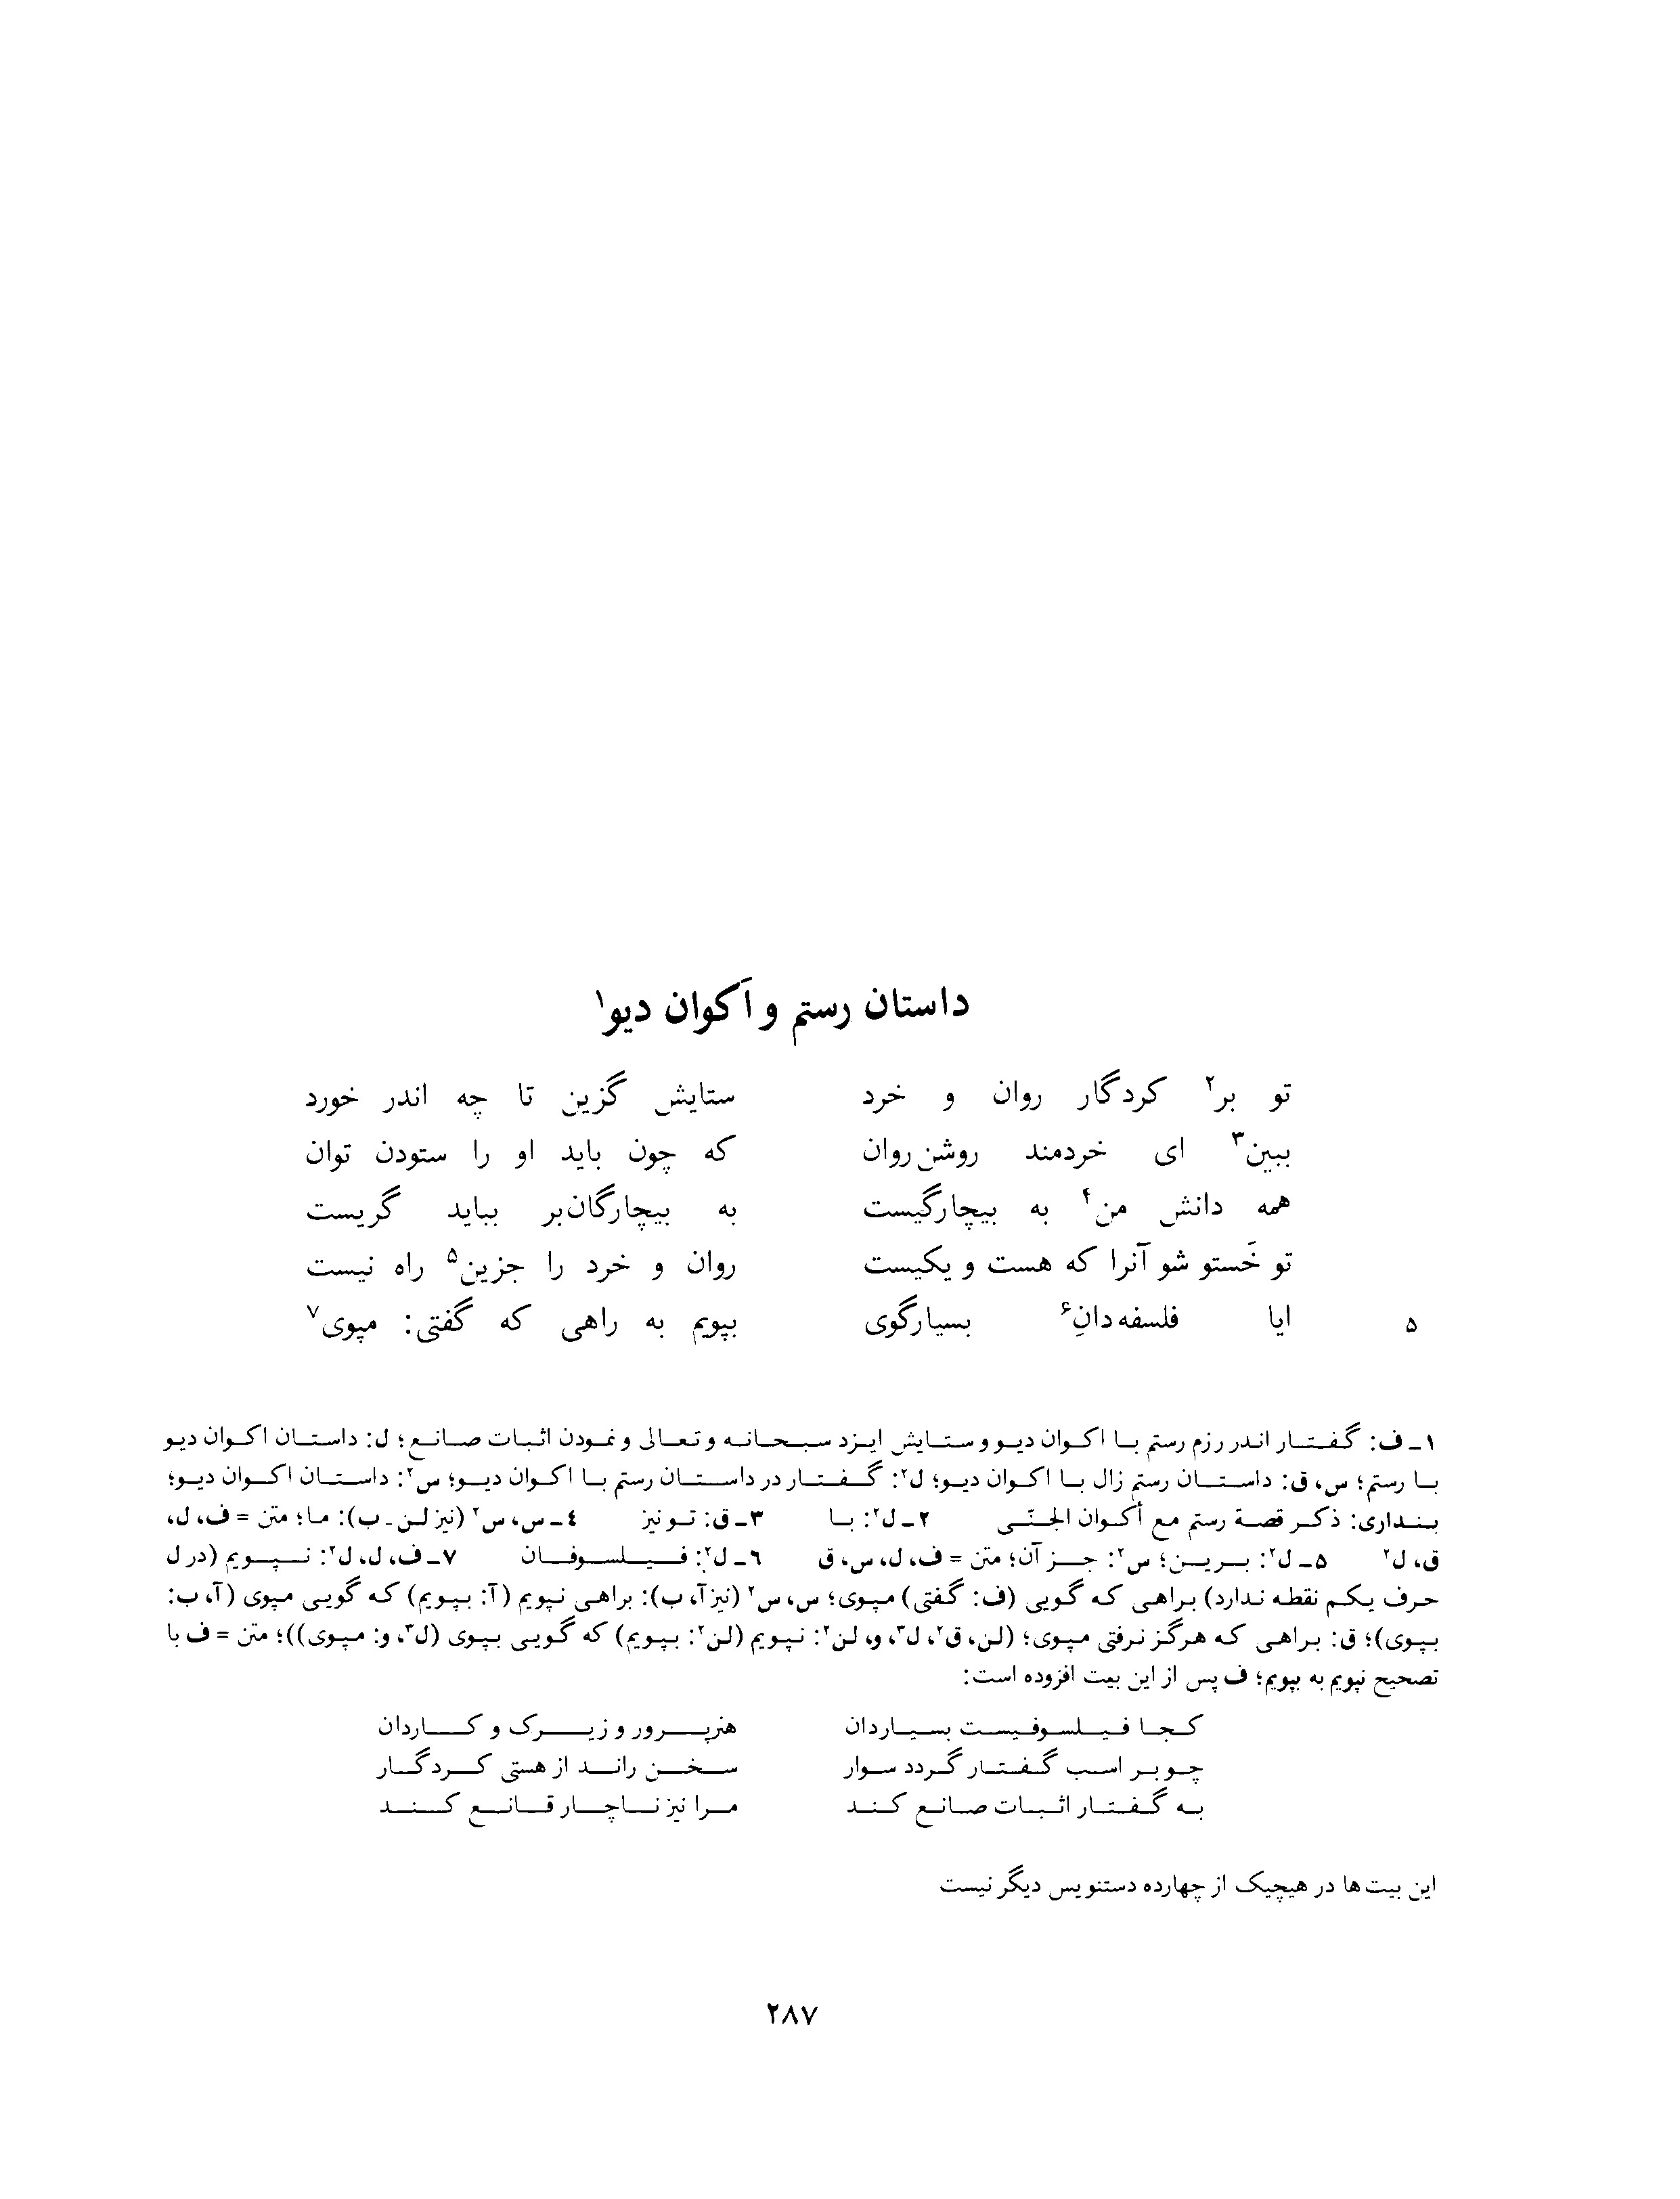 داستان رستم و اَکوان دیو۱
تو بر۲ کردگار روان و خرد ستایش گزین تا چه اندر خورد
ببین۳ ای خردمند روشن‌روان که چون باید او را ستودن توان
همه دانش من۴ به بیچارگیست به بیچارگان‌بر بباید گریست
تو خَستو شو آنرا که هست و یکیست روان و خرد را جزین۵ راه نیست
۵ ایا فلسفه‌دانِ۶ بسیارگوی بپویم به راهی که گفتی: مپوی۷
۱ـ ف: گفتار اندر رزم رستم با اکوان دیو و ستایش ایزد سبحانه و تعالی و نمودن اثبات صانع؛ ل: داستان اکوان دیو
با رستم؛ س، ق: داستان رستم زال با اکوان دیو؛ ل۲: گفتار در داستان رستم با اکوان دیو؛ س۲: داستان اکوان دیو؛
بنداری: ذکر قصة رستم مع أکوان الجنّی ۲ـ ل۲: با ۳ـ ق: تو نیز ۴ـ س، س۲ (نیز لن ـ ب): ما؛ متن = ف، ل،
ق، ل۲ ۵ـ ل۲: برین؛ س۲: جز آن؛ متن = ف، ل، س، ق ۶ـ ل۲: فیلسوفان ۷ـ ف، ل، ل۲: نپویم (در ل
حرف یکم نقطه ندارد) براهی که گویی (ف: گفتی) مپوی؛ س، س۲ (نیز آ، ب): براهی نپویم (آ: بپویم) که گویی مپوی (آ، ب:
بپوی)؛ ق: براهی که هرگز نرفتی مپوی؛ (لن، ق۲، ل۳، و، لن۲: نپویم (لن۲: بپویم) که گویی بپوی (ل۳، و: مپوی))؛ متن = ف با
تصحیح نپویم به بپویم؛ ف پس از این بیت افزوده است:
کجا فیلسوفیست بسیاردان هنرپرور و زیرک و کاردان
چو بر اسب گفتار گردد سوار سخن راند از هستی کردگار
به گفتار اثبات صانع کند مرا نیز ناچار قانع کند
این بیت‌ها در هیچیک از چهارده دستنویس دیگر نیست
۲۸۷